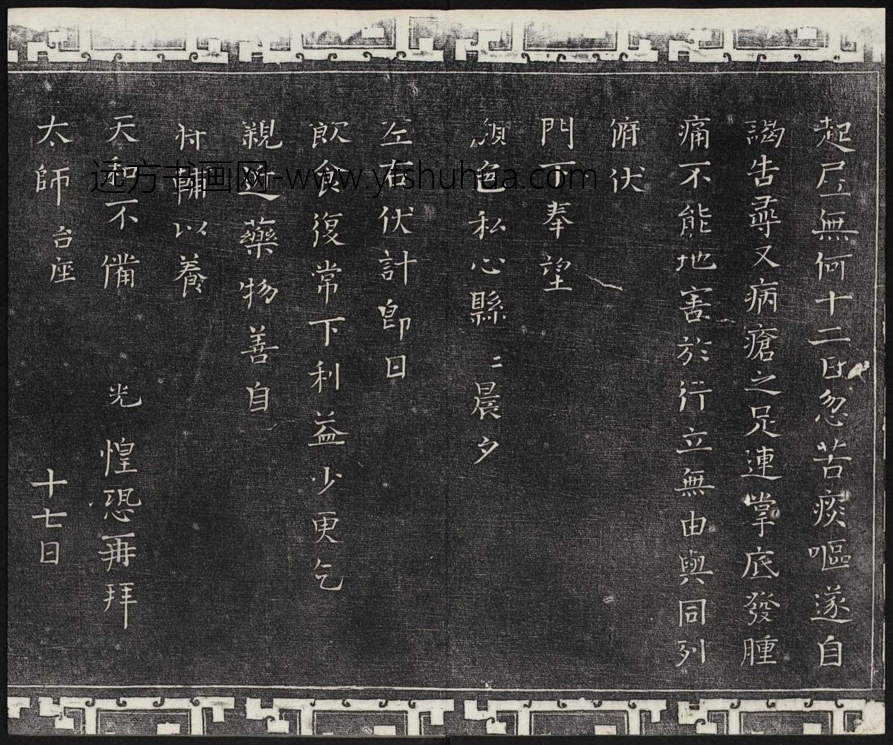 起居無何十二日忽苦痰嘔遂自
謁告尋又病瘡之足連掌底發腫
痛不能地害於行立無由與同列
俯伏
門下奉望
顏色私心縣〻晨夕
左右伏計即日
飲食復常下利益少更乞
親近藥物善自
將輔以養
天和不備 光 惶恐再拜
太師 台座 十七日
远方书画网-www.yfshuhua.com